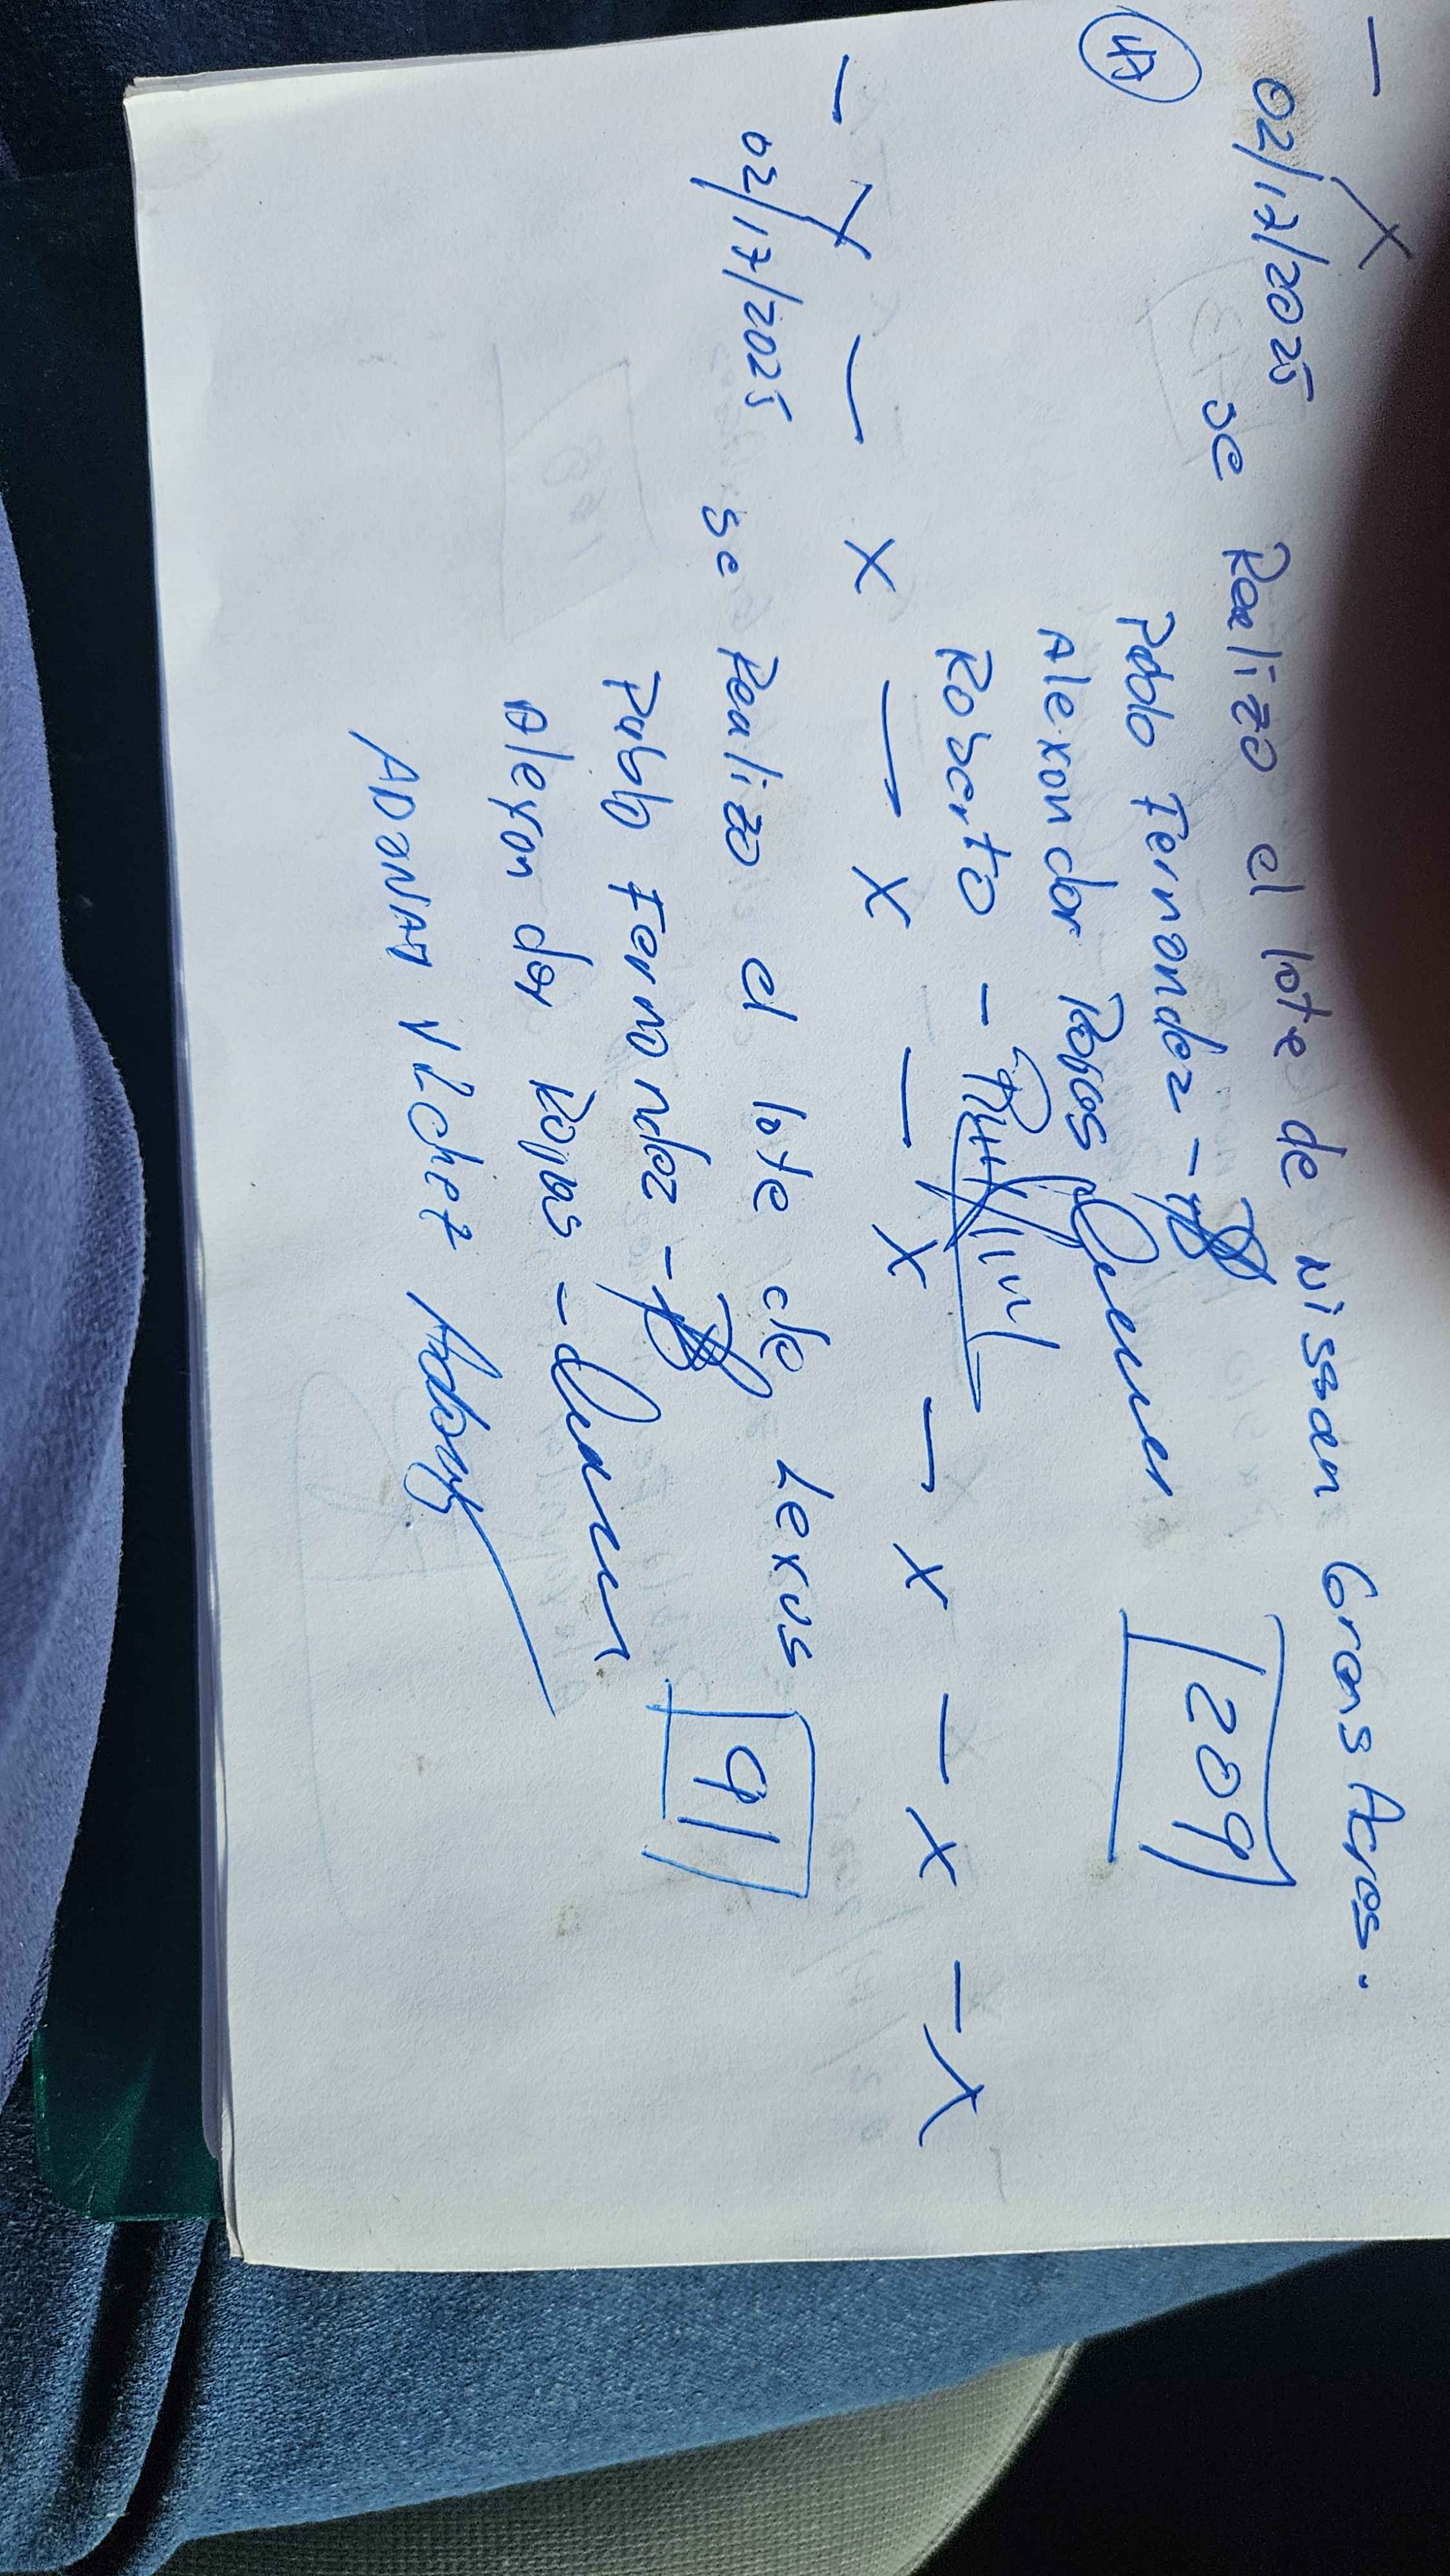 — X
02/17/2025 se Realizo el lote de Nissan Grens Acres.
Pablo Fernandez -
209
Alexander Rojas
Roberto -
— X — X — X — X — X — X — X
02/17/2025 se Realizo el lote de Lexus
Pablo Fernandez -
91
Alexander Rojas -
ADONAY VILCHEZ Adony